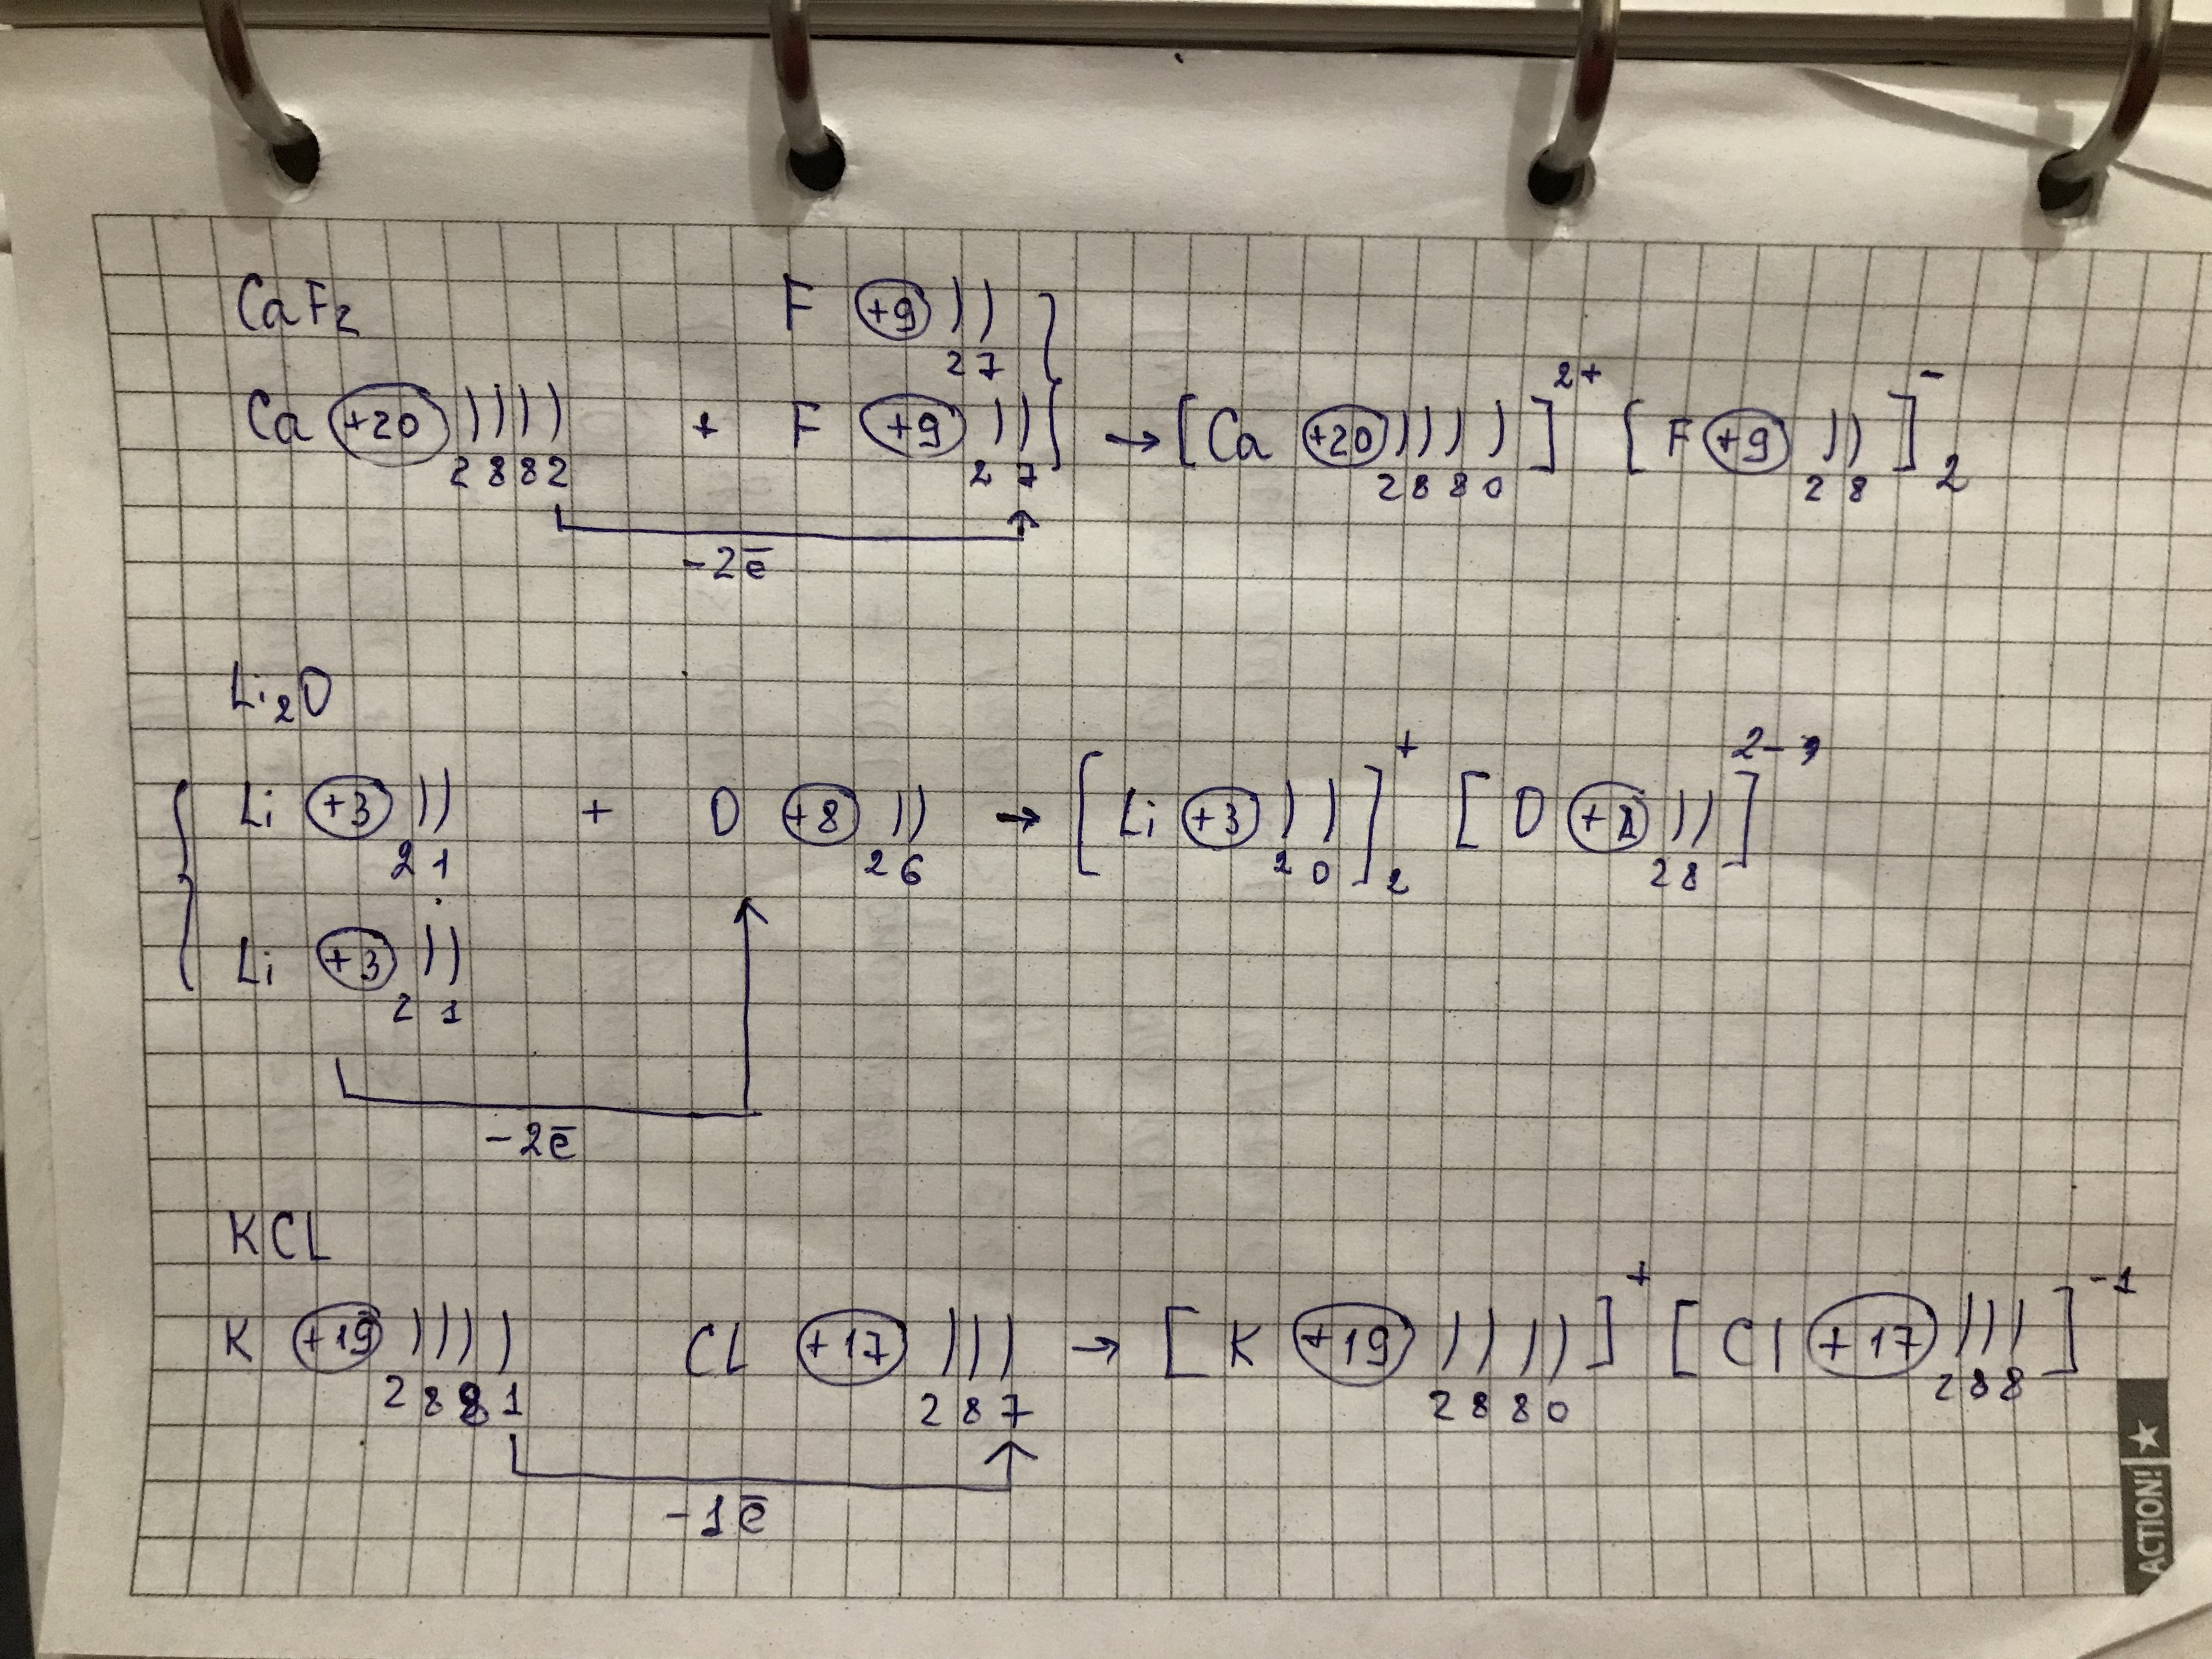 CaF2
F +9 ))
2 7
Ca +20 )))) + F +9 )) → [Ca +20 )))) ]2+ [F +9 )) ]-2
2 8 8 2 2 7 2 8 8 0 2 8
-2ē
Li2O
{ Li +3 )) + O +8 )) → [Li +3 )) ]+2 [O )) ]2-
2 1 2 6 2 0 2 8
Li +3 ))
2 1
-2ē
KCL
K +19 )))) CL +17 ))) → [K +19 )))) ]+ [Cl +17 ))) ]-1
2 8 8 1 2 8 7 2 8 8 0 2 8 8
-1ē
ACTION!